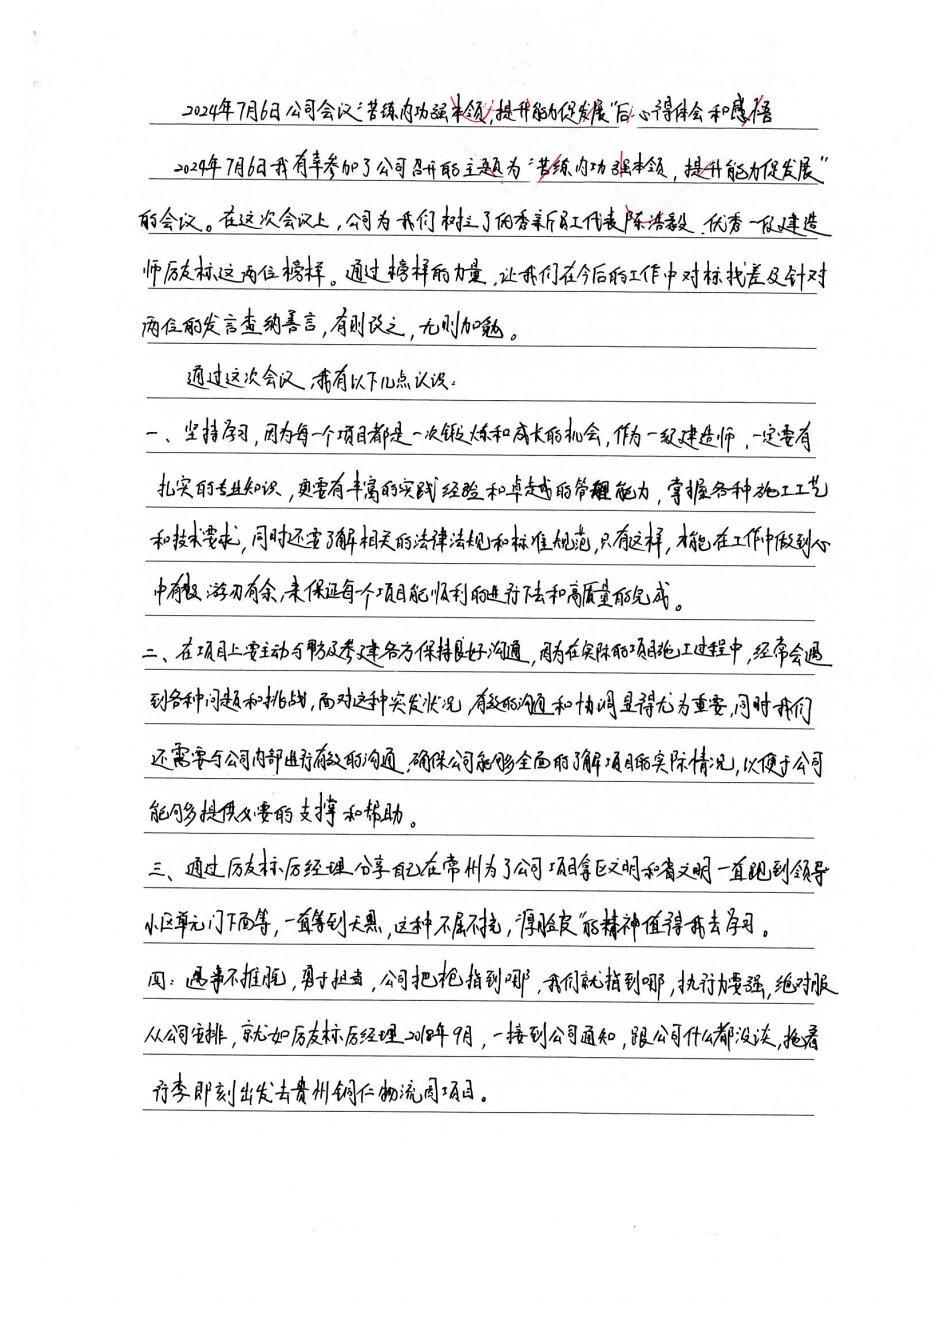 2024年7月6日公司会议“苦练内功强本领,提升能力促发展”后心得体会和感悟
2024年7月6日我有幸参加了公司召开的主题为“苦练内功强本领，提升能力促发展”
的会议。在这次会议上，公司为我们树立了优秀新员工代表陈浩毅、优秀一级建造
师厉友标这两位榜样。通过榜样的力量，让我们在今后的工作中对标找差及针对
两位的发言查纳善言，有则改之，无则加勉。
通过这次会议，我有以下几点认识：
一、坚持学习，因为每一个项目都是一次锻炼和成长的机会，作为一级建造师，一定要有
扎实的专业知识，更要有丰富的实践经验和卓越的管理能力，掌握各种施工工艺
和技术要求，同时还要了解相关的法律法规和标准规范，只有这样，才能在工作中做到心
中有数，游刃有余，来保证每个项目能顺利的进行下去和高质量的完成。
二、在项目上要主动与甲方及参建各方保持良好沟通，因为在实际的项目施工过程中，经常会遇
到各种问题和挑战，面对这种突发状况，有效的沟通和协调显得尤为重要，同时我们
还需要与公司内部进行有效的沟通，确保公司能够全面的了解项目的实际情况，以便于公司
能够多提供必要的支撑和帮助。
三、通过厉友标厉经理分享自己在常州为了公司项目拿区文明和省文明一直跑到领导
小区单元门下面等，一直等到天黑，这种不屈不挠，“厚脸皮”的精神值得我去学习。
四：遇事不推脱，勇于担当，公司把枪指到哪，我们就指到哪，执行力要强，绝对服
从公司安排，就如厉友标厉经理2018年9月，一接到公司通知，跟公司什么都没谈，拖着
行李即刻出发去贵州铜仁物流园项目。